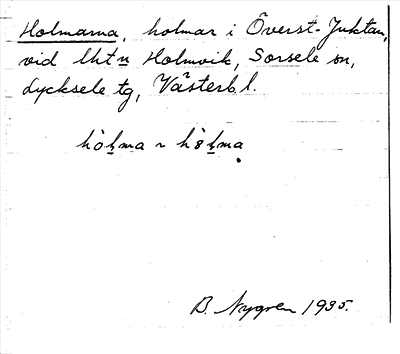 Holmarna, holmar i Överst-Juktan,
vid lht n Holmvik, Sorsele sn,
Lycksele tg, Västerb l.
hòḻma ~ hȯ̀ḻma
B. Nygren 1935.